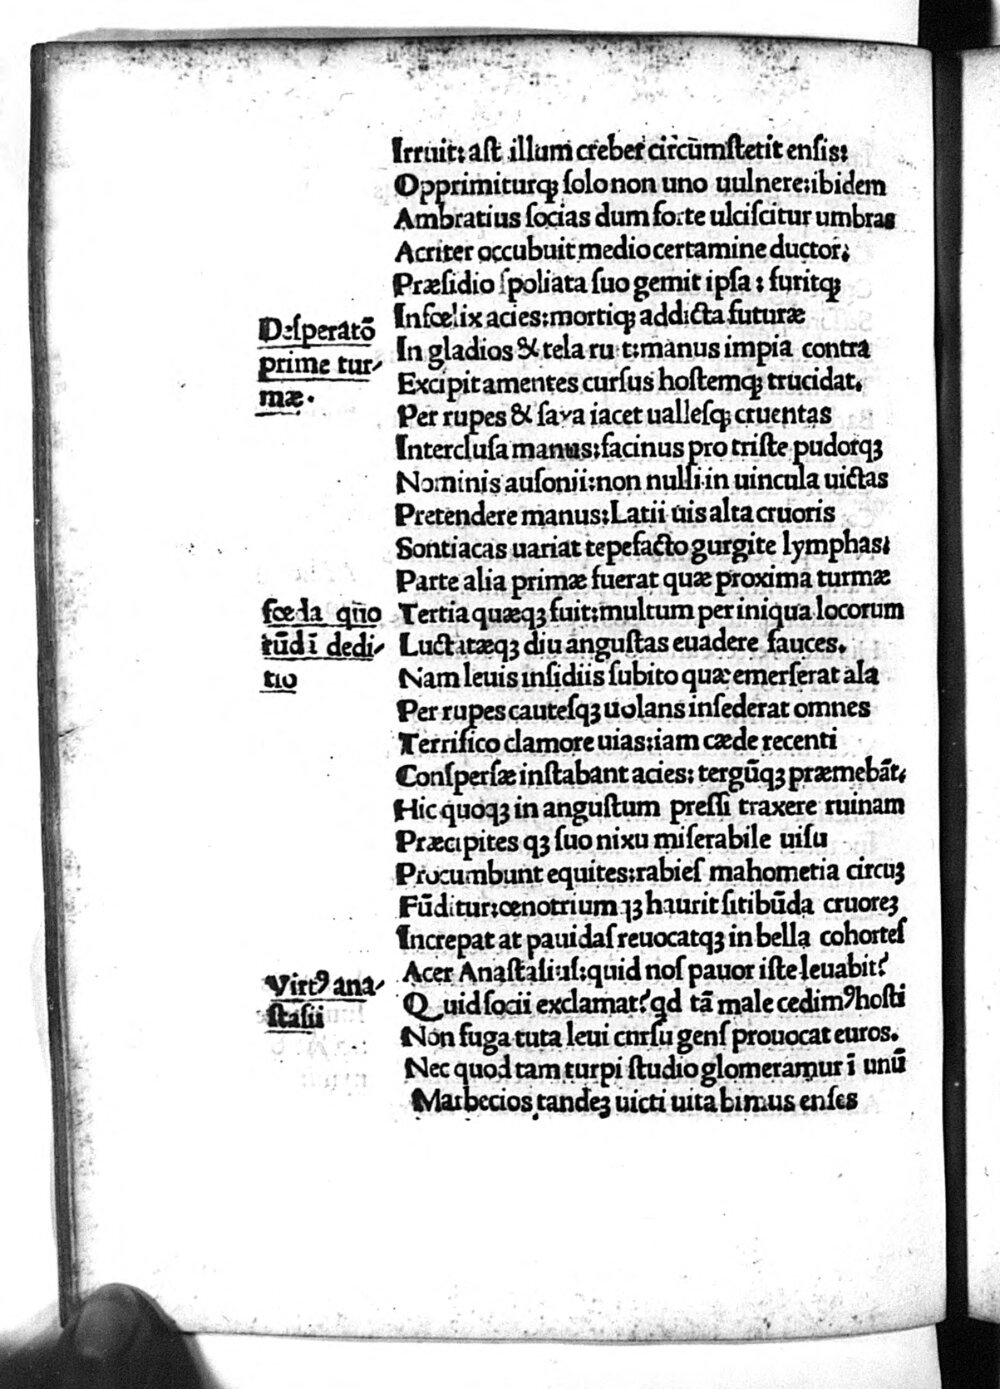 Irruit: aſt illum creber circūmſtetit enſis:
Opprimiturqꝫ ſolo non uno uulnere: ibidem
Ambratius ſocias dum forte ulciſcitur umbras
Acriter occubuit medio certamine ductor.
Præſidio ſpoliata ſuo gemit ipſa: furitqꝫ
Inſœlix acies: mortiqꝫ addicta futuræ
Deſperatō
In gladios & tela ru t: manus impia contra
prime tur-
Excipit amentes curſus hoſtemqꝫ trucidat.
mæ.
Per rupes & saxa iacet uallesqꝫ cruentas
Intercluſa manus: facinus pro triſte pudorqꝫ
Nominis auſonii: non nulli in uincula uictas
Pretendere manus: Latii uis alta cruoris
Sontiacas uariat tepefacto gurgite lymphas:
Parte alia primæ fuerat quæ proxima turmæ
fœda qūo
Tertia quæqꝫ fuit: multum per iniqua locorum
rūdī dedi-
Luctatæqꝫ diu anguſtas euadere fauces.
tio
Nam leuis inſidiis ſubito quæ emerſerat ala
Per rupes cauteſqꝫ uolans inſederat omnes
Terrifico clamore uias: iam cæde recenti
Conſperſæ inſtabant acies: tergūqꝫ præmebāt.
Hic quoqꝫ in anguſtum preſſi traxere ruinam
Præcipites qꝫ ſuo nixu miſerabile uiſu
Procumbunt equites: rabieſ mahometia circuꝫ
Fūditur: œnotrium qꝫ haurit ſitibūda cruoreꝫ
Increpat at pauidaſ reuocatqꝫ in bella cohorteſ
Acer Anaſtaſiuſ: quid noſ pauor iſte leuabit?
Virtꝰ ana-
Quid ſocii exclamat? qd tā male cedimꝰ hoſti
ſtaſii
Non fuga tuta leui curſu genſ prouocat euros.
Nec quod tam turpi ſtudio glomeramur ī unū
Marbecios tandeꝫ uicti uitabimus enſes